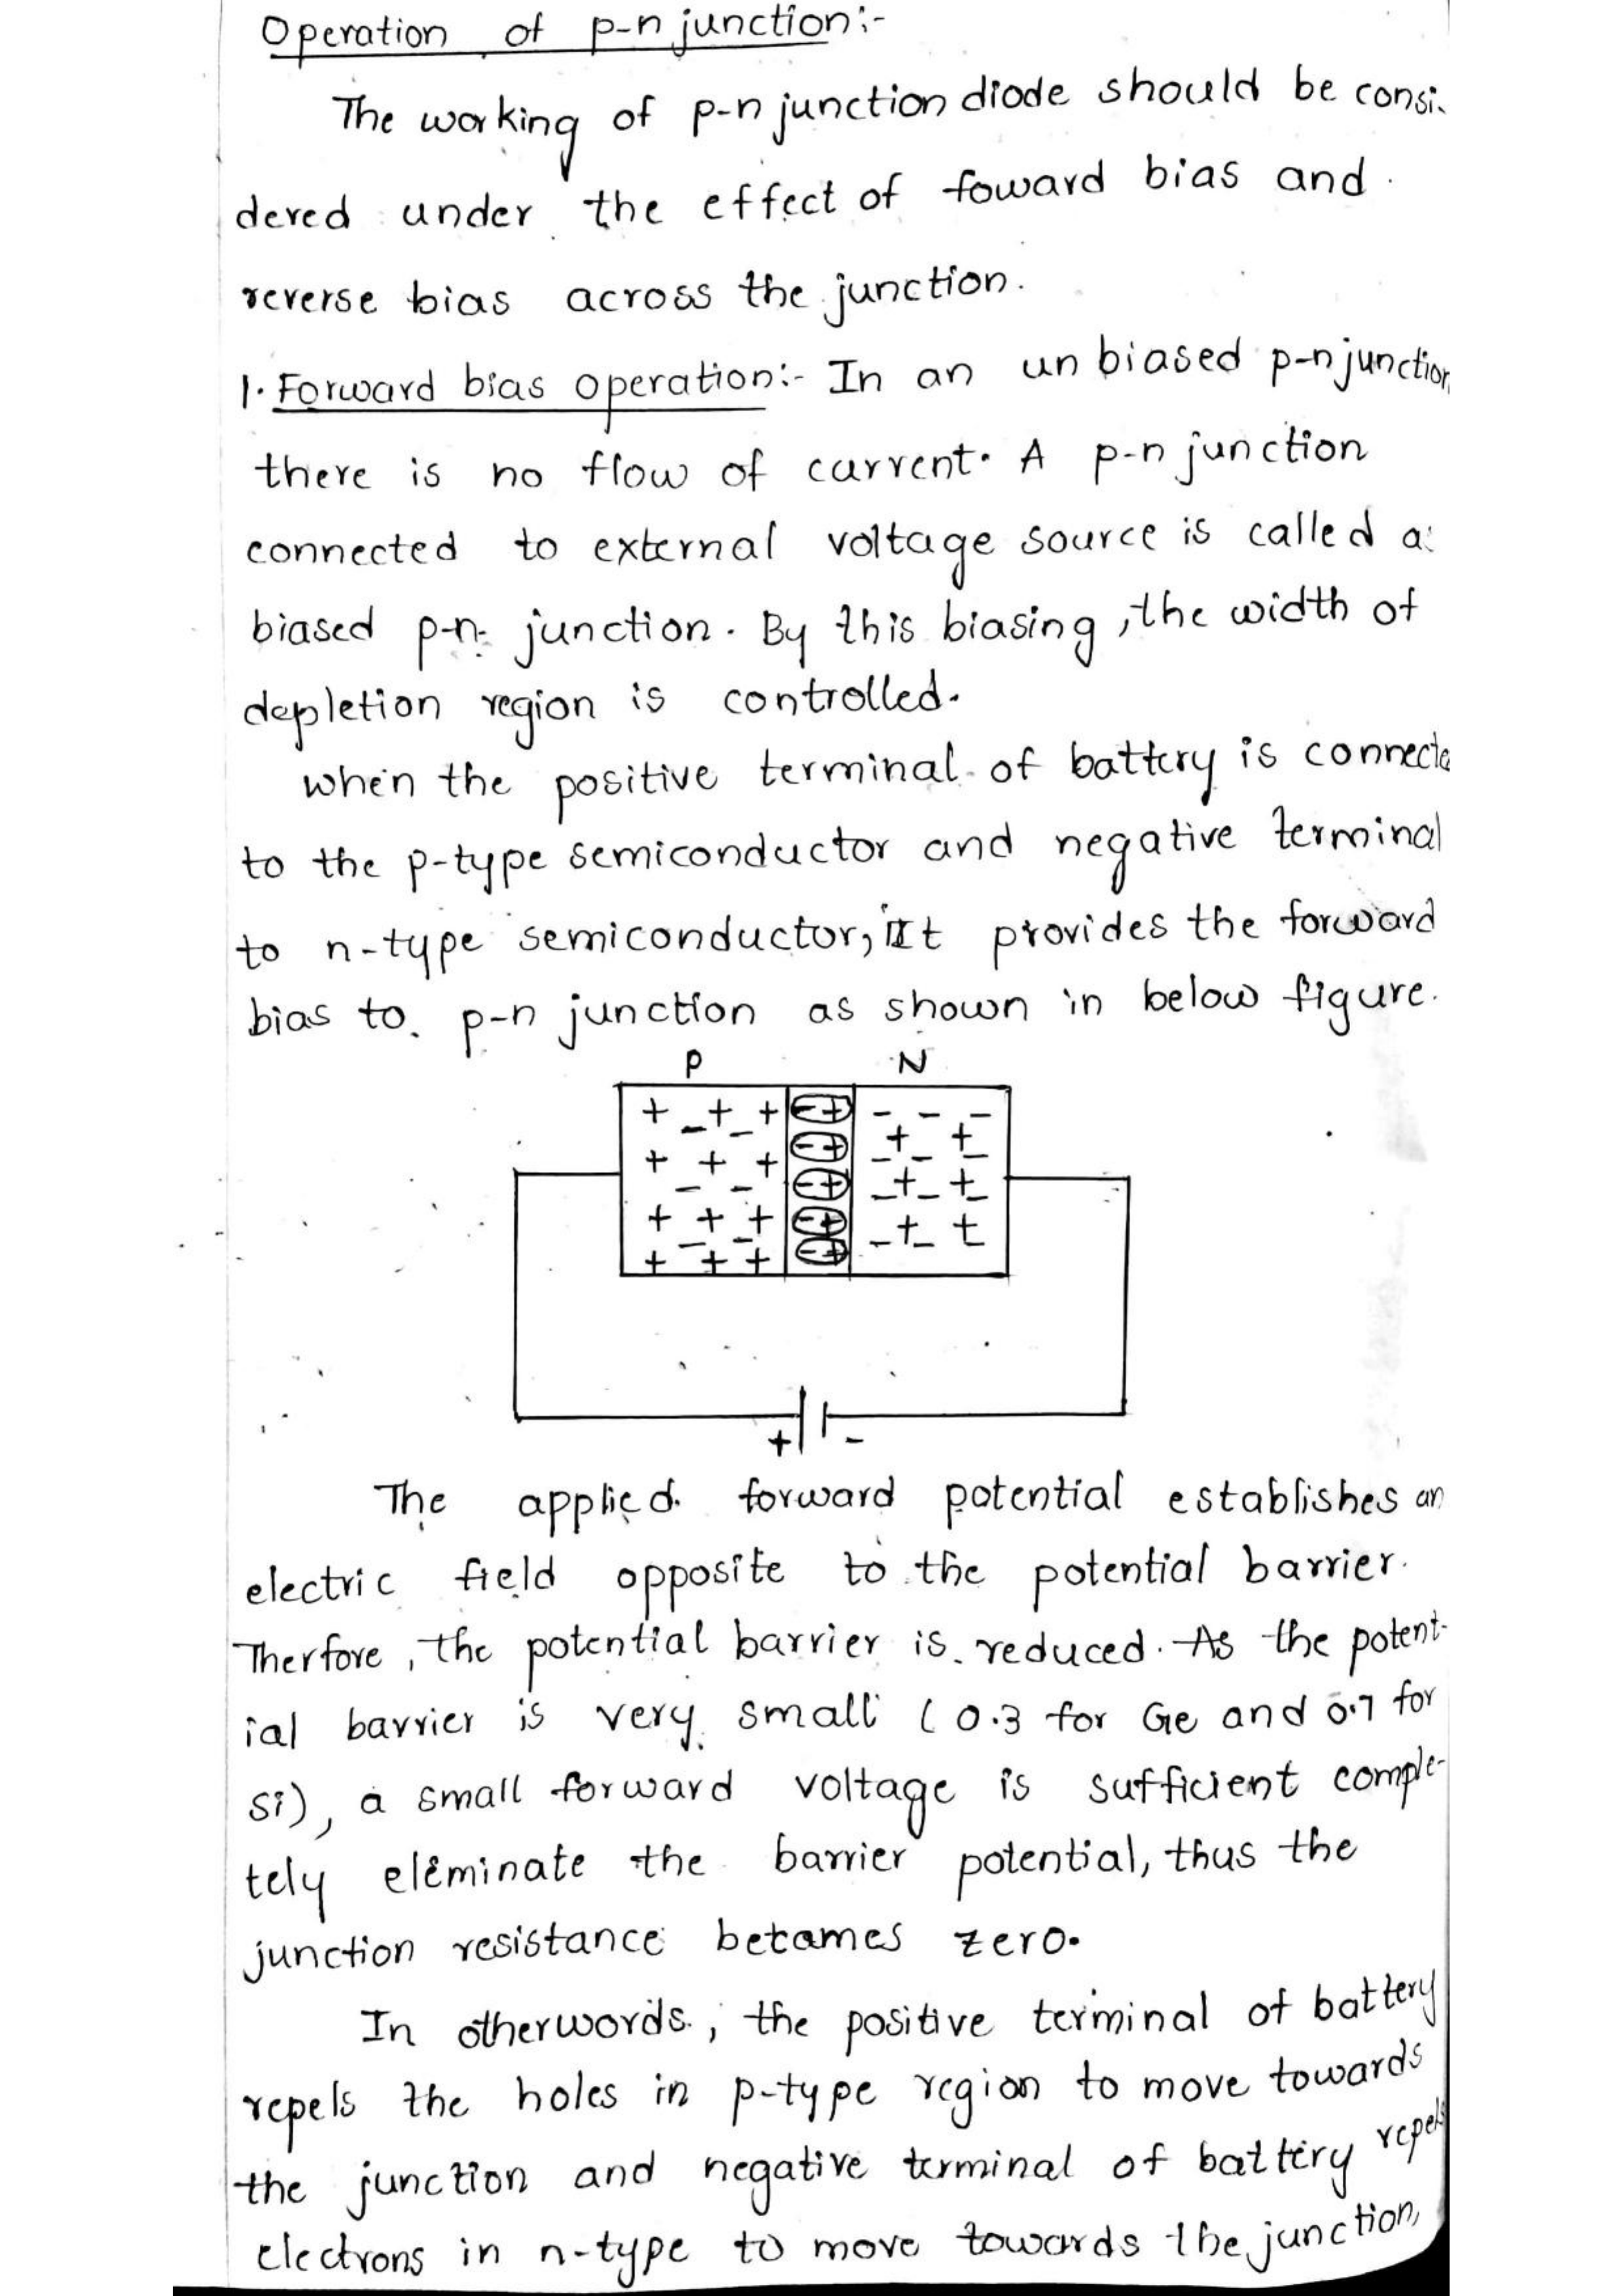 Operation of p-n junction:-
The working of p-n junction diode should be consi-
dered under the effect of foward bias and
reverse bias across the junction.
1. Forward bias operation:- In an un biased p-n junction
there is no flow of current. A p-n junction
connected to external voltage source is called a:
biased p-n junction. By this biasing, the width of
depletion region is controlled.
when the positive terminal of battery is connecte
to the p-type semiconductor and negative terminal
to n-type semiconductor, it provides the forward
bias to p-n junction as shown in below figure.
P N
+ + + - + - - -
- - + +
+ + + - + - - -
- - + +
- + - - -
+ + + - + + +
- - - -
+ + + - +
+ -
The applied forward potential establishes an
electric field opposite to the potential barrier.
Therfore, the potential barrier is reduced. As the potent-
ial barrier is very small (0.3 for Ge and 0.7 for
si), a small forward voltage is sufficient comple-
tely eleminate the barrier potential, thus the
junction resistance betames zero.
In otherwords, the positive terminal of battery
repels the holes in p-type region to move towards
the junction and negative terminal of battery repels
electrons in n-type to move towards the junction,